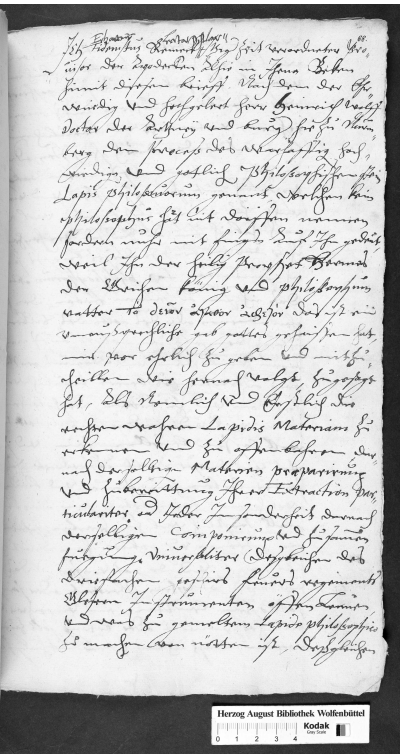 Ich
Zeit verordneter Pro-
uisor der Apodecken alhie in Jhena Beken
himit diesem brieff Nach dem der Ehr-
wirdig vnd hochgelert herr Heinrich Wolff
Doctor der Artzney vnd burger hie zu Nurn-
berg den process des warhafftig hoch
wirdigen vnd gotlich Philosophischen stein
Lapis Philosophorum genant, welchen kein
philosophus hat mit dorffen nennen
sondern nuhr mit fingern auf Jhn gedeut
weil Jhn der heilig Prophet Hermes
der Grichen König vnd Philosophorum
vatter das ist ein
vnaußsprechliche gab gottes geheissen hat,
mir gar ehrlich zu geben vnd mit zu-
theillen wie hernach volgt, zugesagt
hat, Als Nemlich vnd Erstlich die
rechten wahren Lapidis Materiam zu
erkennen vnd zu offenbahren, dar-
nach derselbigen Materien praeparirung
vnd zubereittung Jhrer Extraction par-
ticulariter, ein Jeder Jn sonderheit darnach
derselbigen Componirung vnd zusamen
fuegung, Desgleichen des
feuers regiments
Glesern Jnstrumenten offen
vnd was zu gemeltem Lapide philosophico
zu machen von nötten ist, Deßgleichen
Herzog August Bibliothek Wolfenbüttel
0 1 2 3 4
Kodak
Gray Scale